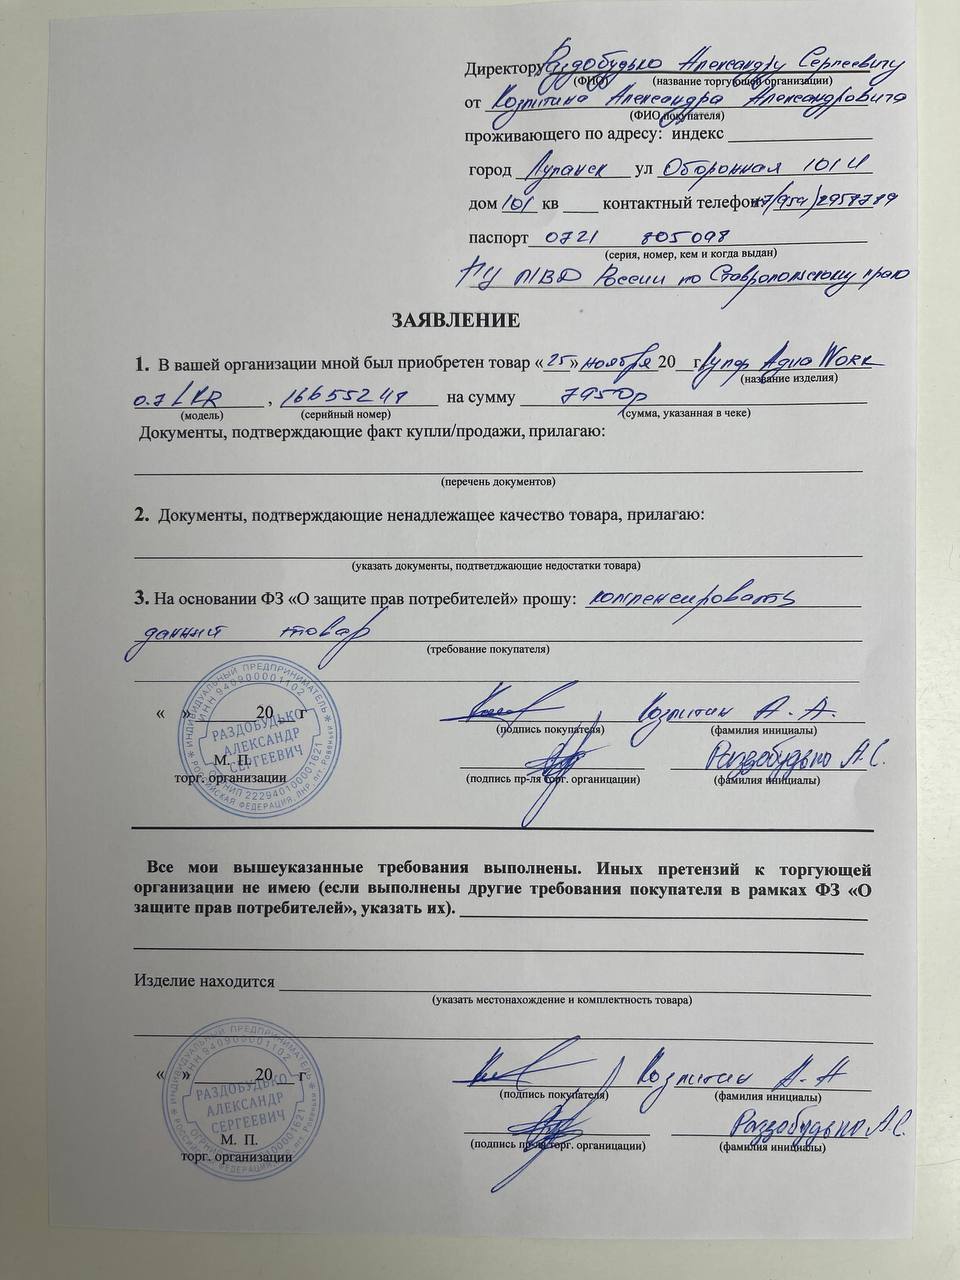 Директору Раздобудько Александру Сергеевичу
(ФИО) (название торгующей организации)
от Козлитина Александра Александровича
(ФИО покупателя)
проживающего по адресу: индекс
город Луганск ул Оборонная 101 И
дом 101 кв контактный телефон +7(959)2958789
паспорт 0721 805098
(серия, номер, кем и когда выдан)
МВД России по Ставропольскому краю
ЗАЯВЛЕНИЕ
1. В вашей организации мной был приобретен товар «25» ноября 20 г. Aqua Work
(название изделия)
0.7 LKR , на сумму 7950р
(модель) (серийный номер) (сумма, указанная в чеке)
Документы, подтверждающие факт купли/продажи, прилагаю:
(перечень документов)
2. Документы, подтверждающие ненадлежащее качество товара, прилагаю:
(указать документы, подтветджающие недостатки товара)
3. На основании ФЗ «О защите прав потребителей» прошу: компенсировать
данный товар
(требование покупателя)
« » 20 г Козлитин А.А.
(подпись покупателя) (фамилия инициалы)
М. П. Раздобудько А.С.
торг. организации (подпись пр-ля торг. органицации) (фамилия инициалы)
ИНДИВИДУАЛЬНЫЙ ПРЕДПРИНИМАТЕЛЬ
ИНН 940900001102
РАЗДОБУДЬКО
АЛЕКСАНДР
СЕРГЕЕВИЧ
ОГРНИП 222940100001621
РОССИЙСКАЯ ФЕДЕРАЦИЯ, ЛНР, пгт. Ровеньки
Все мои вышеуказанные требования выполнены. Иных претензий к торгующей
организации не имею (если выполнены другие требования покупателя в рамках ФЗ «О
защите прав потребителей», указать их).
Изделие находится
(указать местонахождение и комплектность товара)
« » 20 г Козлитин А.А
(подпись покупателя) (фамилия инициалы)
М. П. Раздобудько А.С.
торг. организации (подпись пр-ля торг. органицации) (фамилия инициалы)
ИНДИВИДУАЛЬНЫЙ ПРЕДПРИНИМАТЕЛЬ
ИНН 940900001102
РАЗДОБУДЬКО
АЛЕКСАНДР
СЕРГЕЕВИЧ